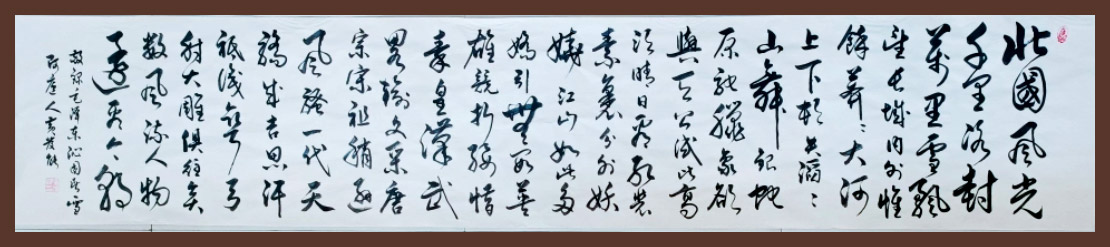 北國風光
千里冰封
萬里雪飄
望長城內外惟
餘莽〻大河
上下頓失滔〻
山舞銀蛇
原馳蠟象欲
與天公試比高
須晴日看紅裝
素裹分外妖
嬈江山如此多
嬌引無數英
雄競折腰惜
秦皇漢武
略輸文采唐
宗宋祖稍遜
風騷一代天
驕成吉思汗
祗識彎弓
射大雕俱往矣
數風流人物
還看今朝
敬錄毛澤東沁園春雪